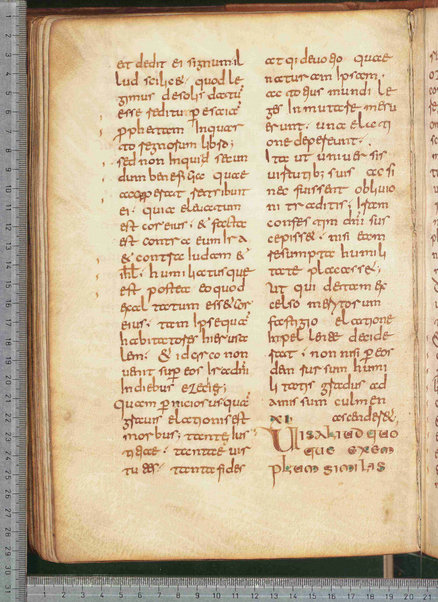 est dedit ei signum il
lud scilicet quod le
gimus de solis datum
esse reditu per esaiam
prophetam. Inquar
to regnorum libro;
sed non Inquid secun
dum beneficia quae
acceperat retribuit
ei. quia eleuatum
est cor eius. & facta
est contra eum Ira
& contra iudam &
ihrl. humiliatusque
est postea eo quod
exaltatum esset cor
eius. tam Ipse quam
habitatores hierusa
lem. & idcirco non
uenit super eos Ira dni
Indiebus ezechie;
Quam perniciosus quam
grauis elationis est
morbus; tante ius
titiae. tantae uir
tutes. tanta fides
atque deuotio quae
naturam Ipsam.
ac totius mundi le
ges Inmutare meru
erunt. una elati
one deperierunt.
Ita ut uniuersis
uirtutibus suis ac si
nec fuissent obliuio
ni traditis; Iram
confestim dni sus
cepisset. nisi eam
resumpta humili
tate placasset;
Ut qui de tam ex
celso meritorum
fastigio elatione
Inpellente decide
rat. non nisi per eos
dem rursum humi
litatis gradus ad
amissum culmen
XI ascenderet;
Uis aliud quo
que exem
plum simile